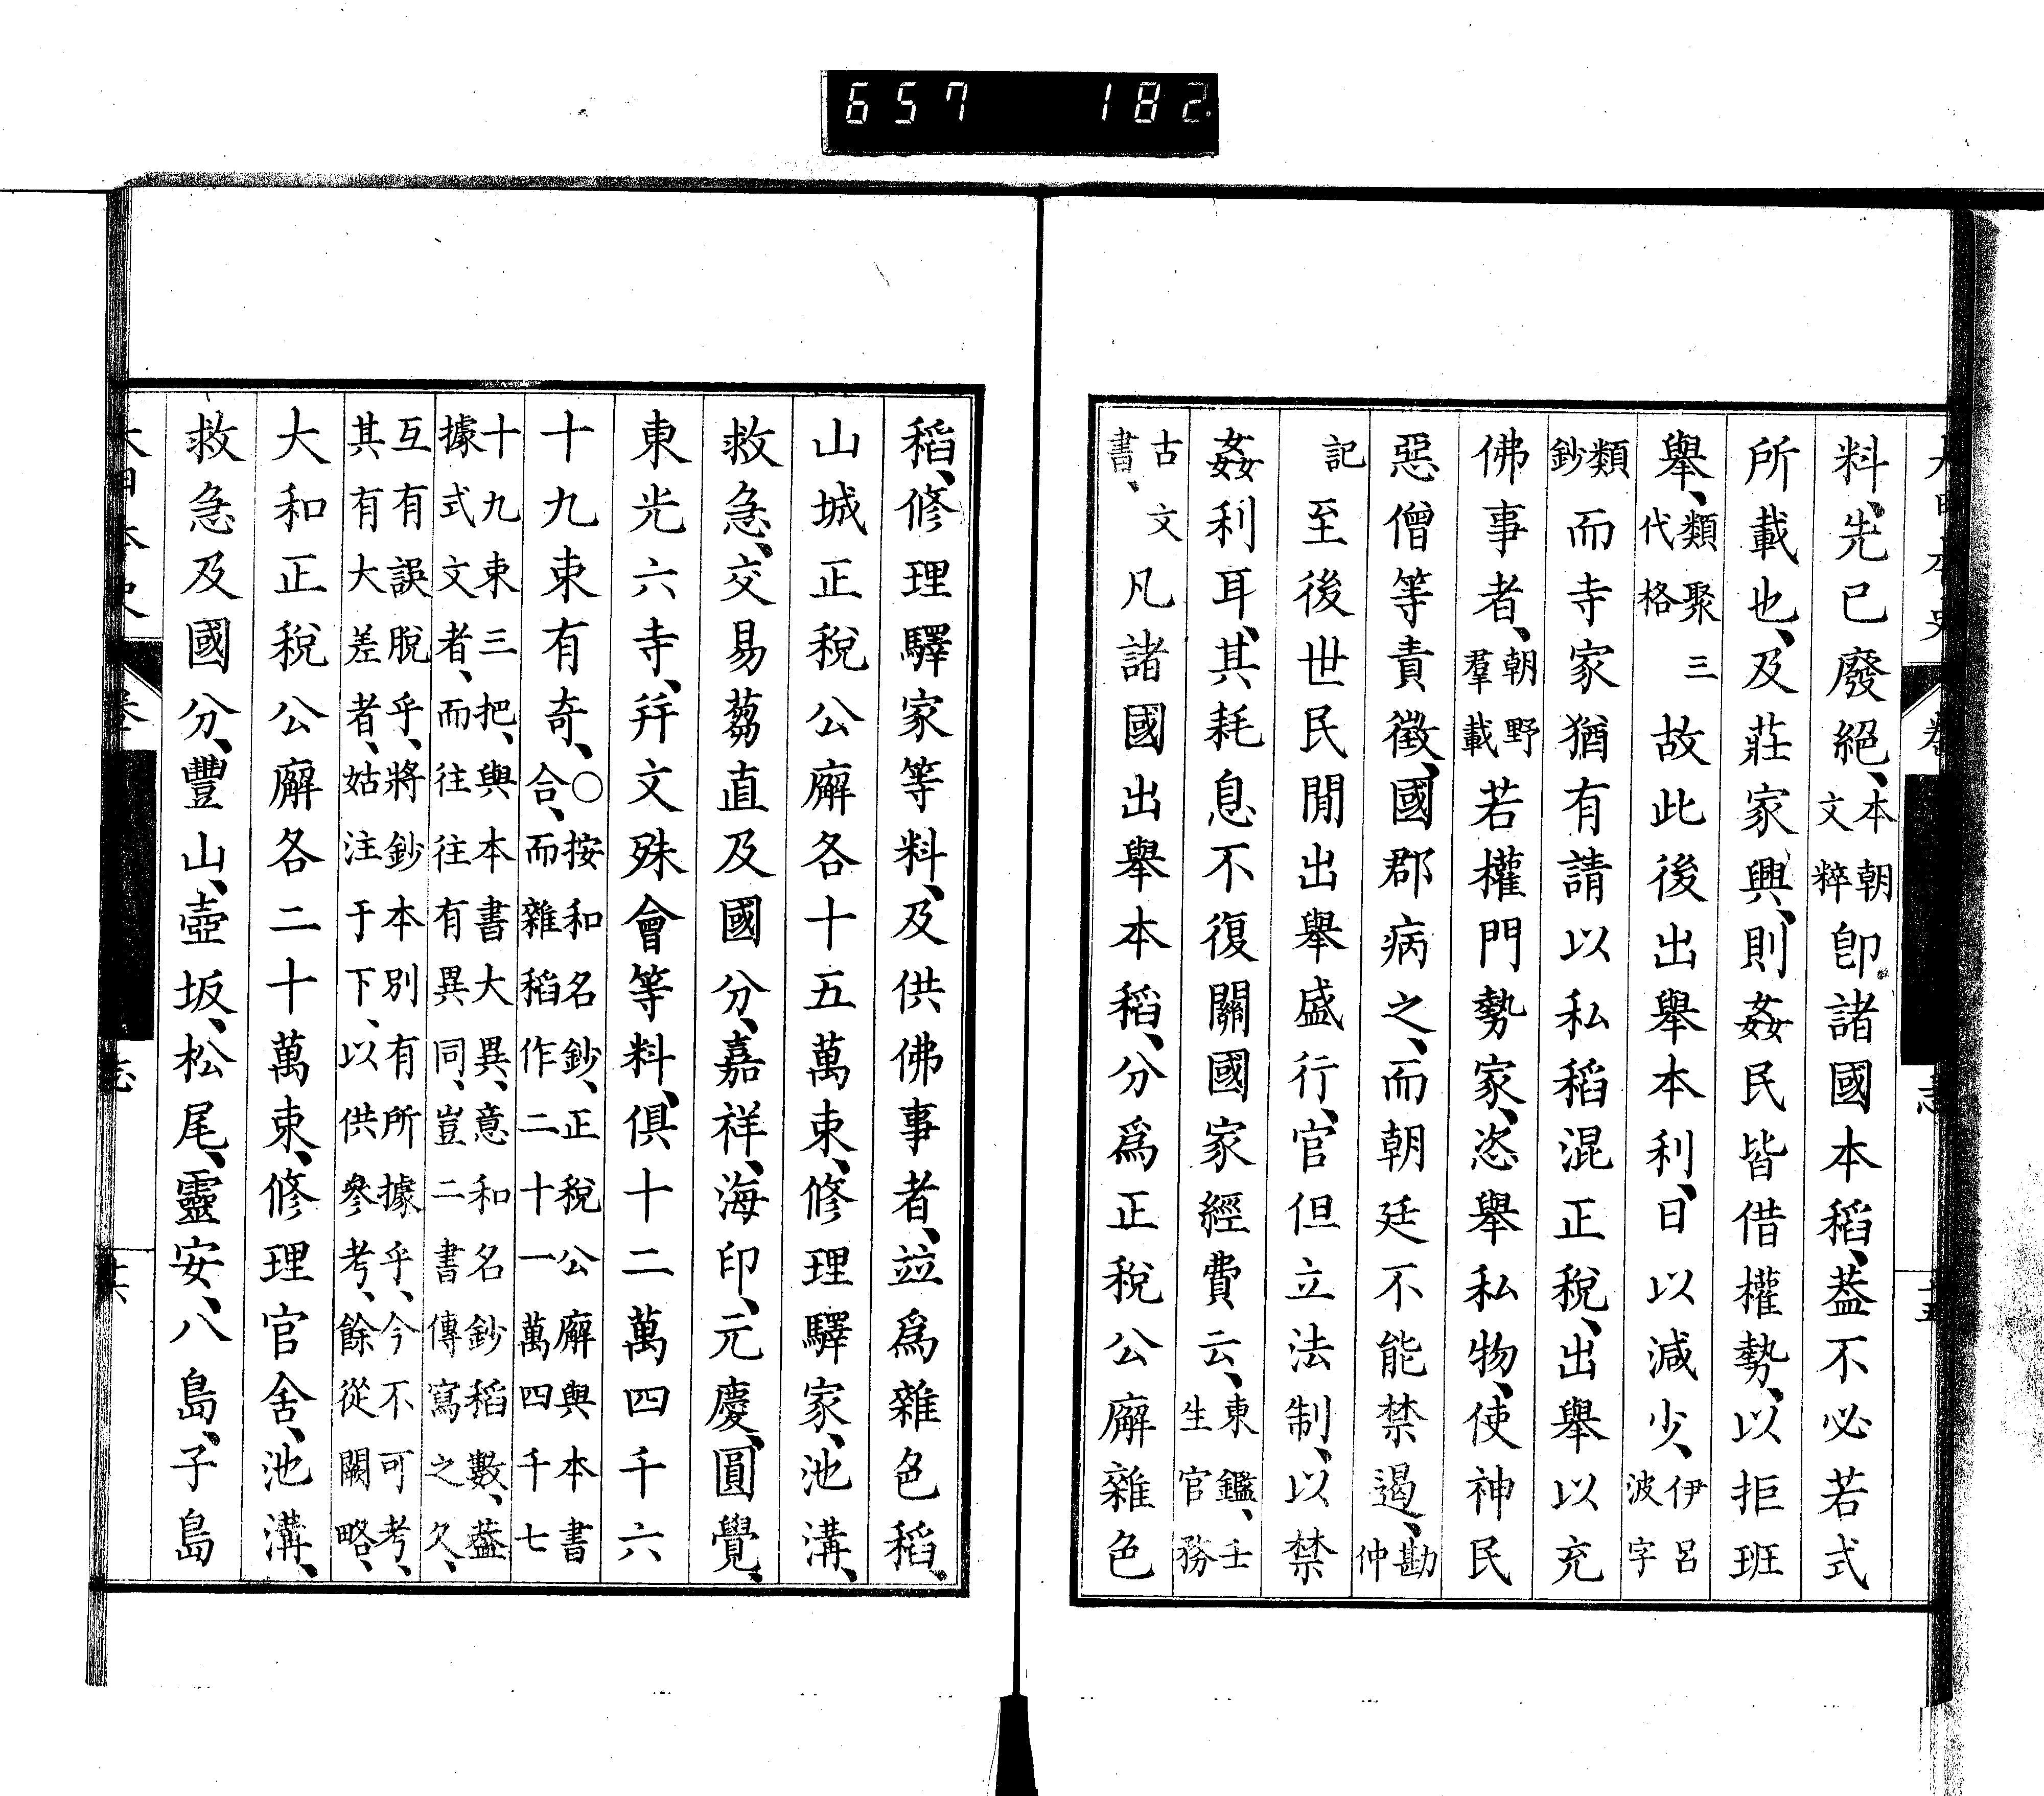 657 182
料、先已廢絕、本朝文粹即諸國本稻、葢不必若式
所載也、及莊家興、則姦民皆借權勢、以拒班
擧、類聚三代格故此後出擧本利、日以減少、伊呂波字
類鈔而寺家猶有請以私稻混正稅、出擧以充
佛事者、朝野羣載若權門勢家、恣擧私物、使神民
惡僧等責徵、國郡病之、而朝廷不能禁遏、勘仲
記至後世民閒出擧盛行、官但立法制、以禁
姦利耳、其耗息不復關國家經費云、東鑑、壬生官務
古文書、凡諸國出擧本稻、分爲正稅公廨雜色
稻、修理驛家等料、及供佛事者、竝爲雜色稻、
山城正稅公廨各十五萬束、修理驛家、池溝、
救急、交易蒭直及國分、嘉祥、海印、元慶、圓覺、
東光六寺、幷文殊會等料、俱十二萬四千六
十九束有奇、○按和名鈔、正稅公廨與本書合、而雜稻作二十一萬四千七
十九束三把、與本書大異、意和名鈔稻數、葢據式文者、而往往有異同、豈二書傳寫之久、
互有誤脫乎、將鈔本別有所據乎、今不可考、其有大差者、姑注于下、以供參考、餘從闕略、
大和正稅公廨各二十萬束、修理官舍、池溝、
救急及國分、豐山、壺坂、松尾、靈安、八島、子島